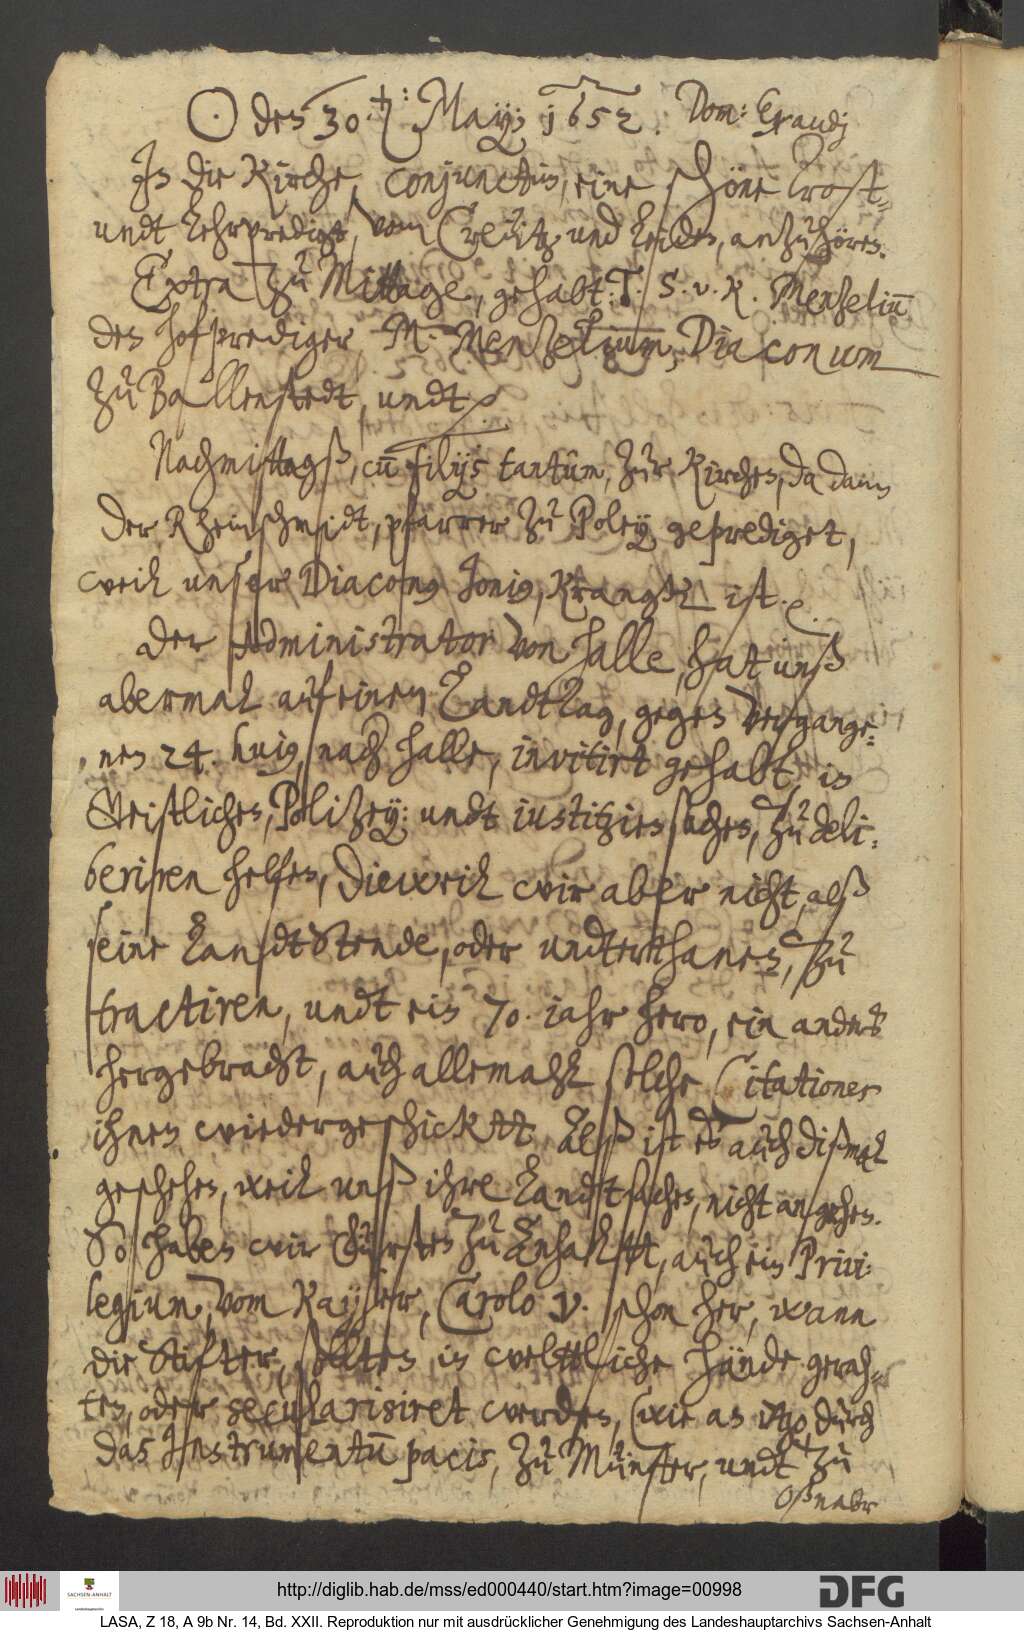 ☉ den 30.t: Maÿ: 1652. Dom: Exaudj
In die Kirche, conjunctim, eine schöne Trost-
undt Lehrpredigt, vom Creütz und Leiden, anzuhören.
Extra zu Mittage, gehabt: T. S. v. K. Menzeliū
den hofprediger, M. Menzelium, Diaconum
zu Ballenstedt, undt
Nachmittagß, cū filijs tantûm, zur Kirchen, da dann
der Rheinschmidt, pfarrer zu Poleÿ geprediget,
weil unser Diaconus Jonius, Kranck ist.
Der Administrator von Halle, hat unß
abermal auf einen Landtag, gegen vergange-
nen 24. huius, nach Halle, invitirt gehabt, in
Geistlichen, Polizeÿ: undt iustitzien sachen, zu deli-
beriren helfen, Dieweil wir aber nicht, alß
seine LandtStende, oder undterthanen, zu
tractiren, undt ein 70. iahr hero, ein anders
hergebracht, auch allemahl solche Citationes
ihnen wiedergeschicktt, Alß ist es auch dißmal
geschehen, weil unß ihre Landtsachen, nicht angehen.
So haben wir Fürsten zu Anhaltt, auch ein Privi-
legium, vom Kayser, Carolo V. schon her, wann
die Stifter, sollten in welttliche hände gerah-
ten, oder secularisiret werden, (wie an itzo, durch
das Instrumentū pacis, zu Münster, undt zu
Oßnabr
http://diglib.hab.de/mss/ed000440/start.htm?image=00998
SACHSEN-ANHALT
DFG
LASA, Z 18, A 9b Nr. 14, Bd. XXII. Reproduktion nur mit ausdrücklicher Genehmigung des Landeshauptarchivs Sachsen-Anhalt